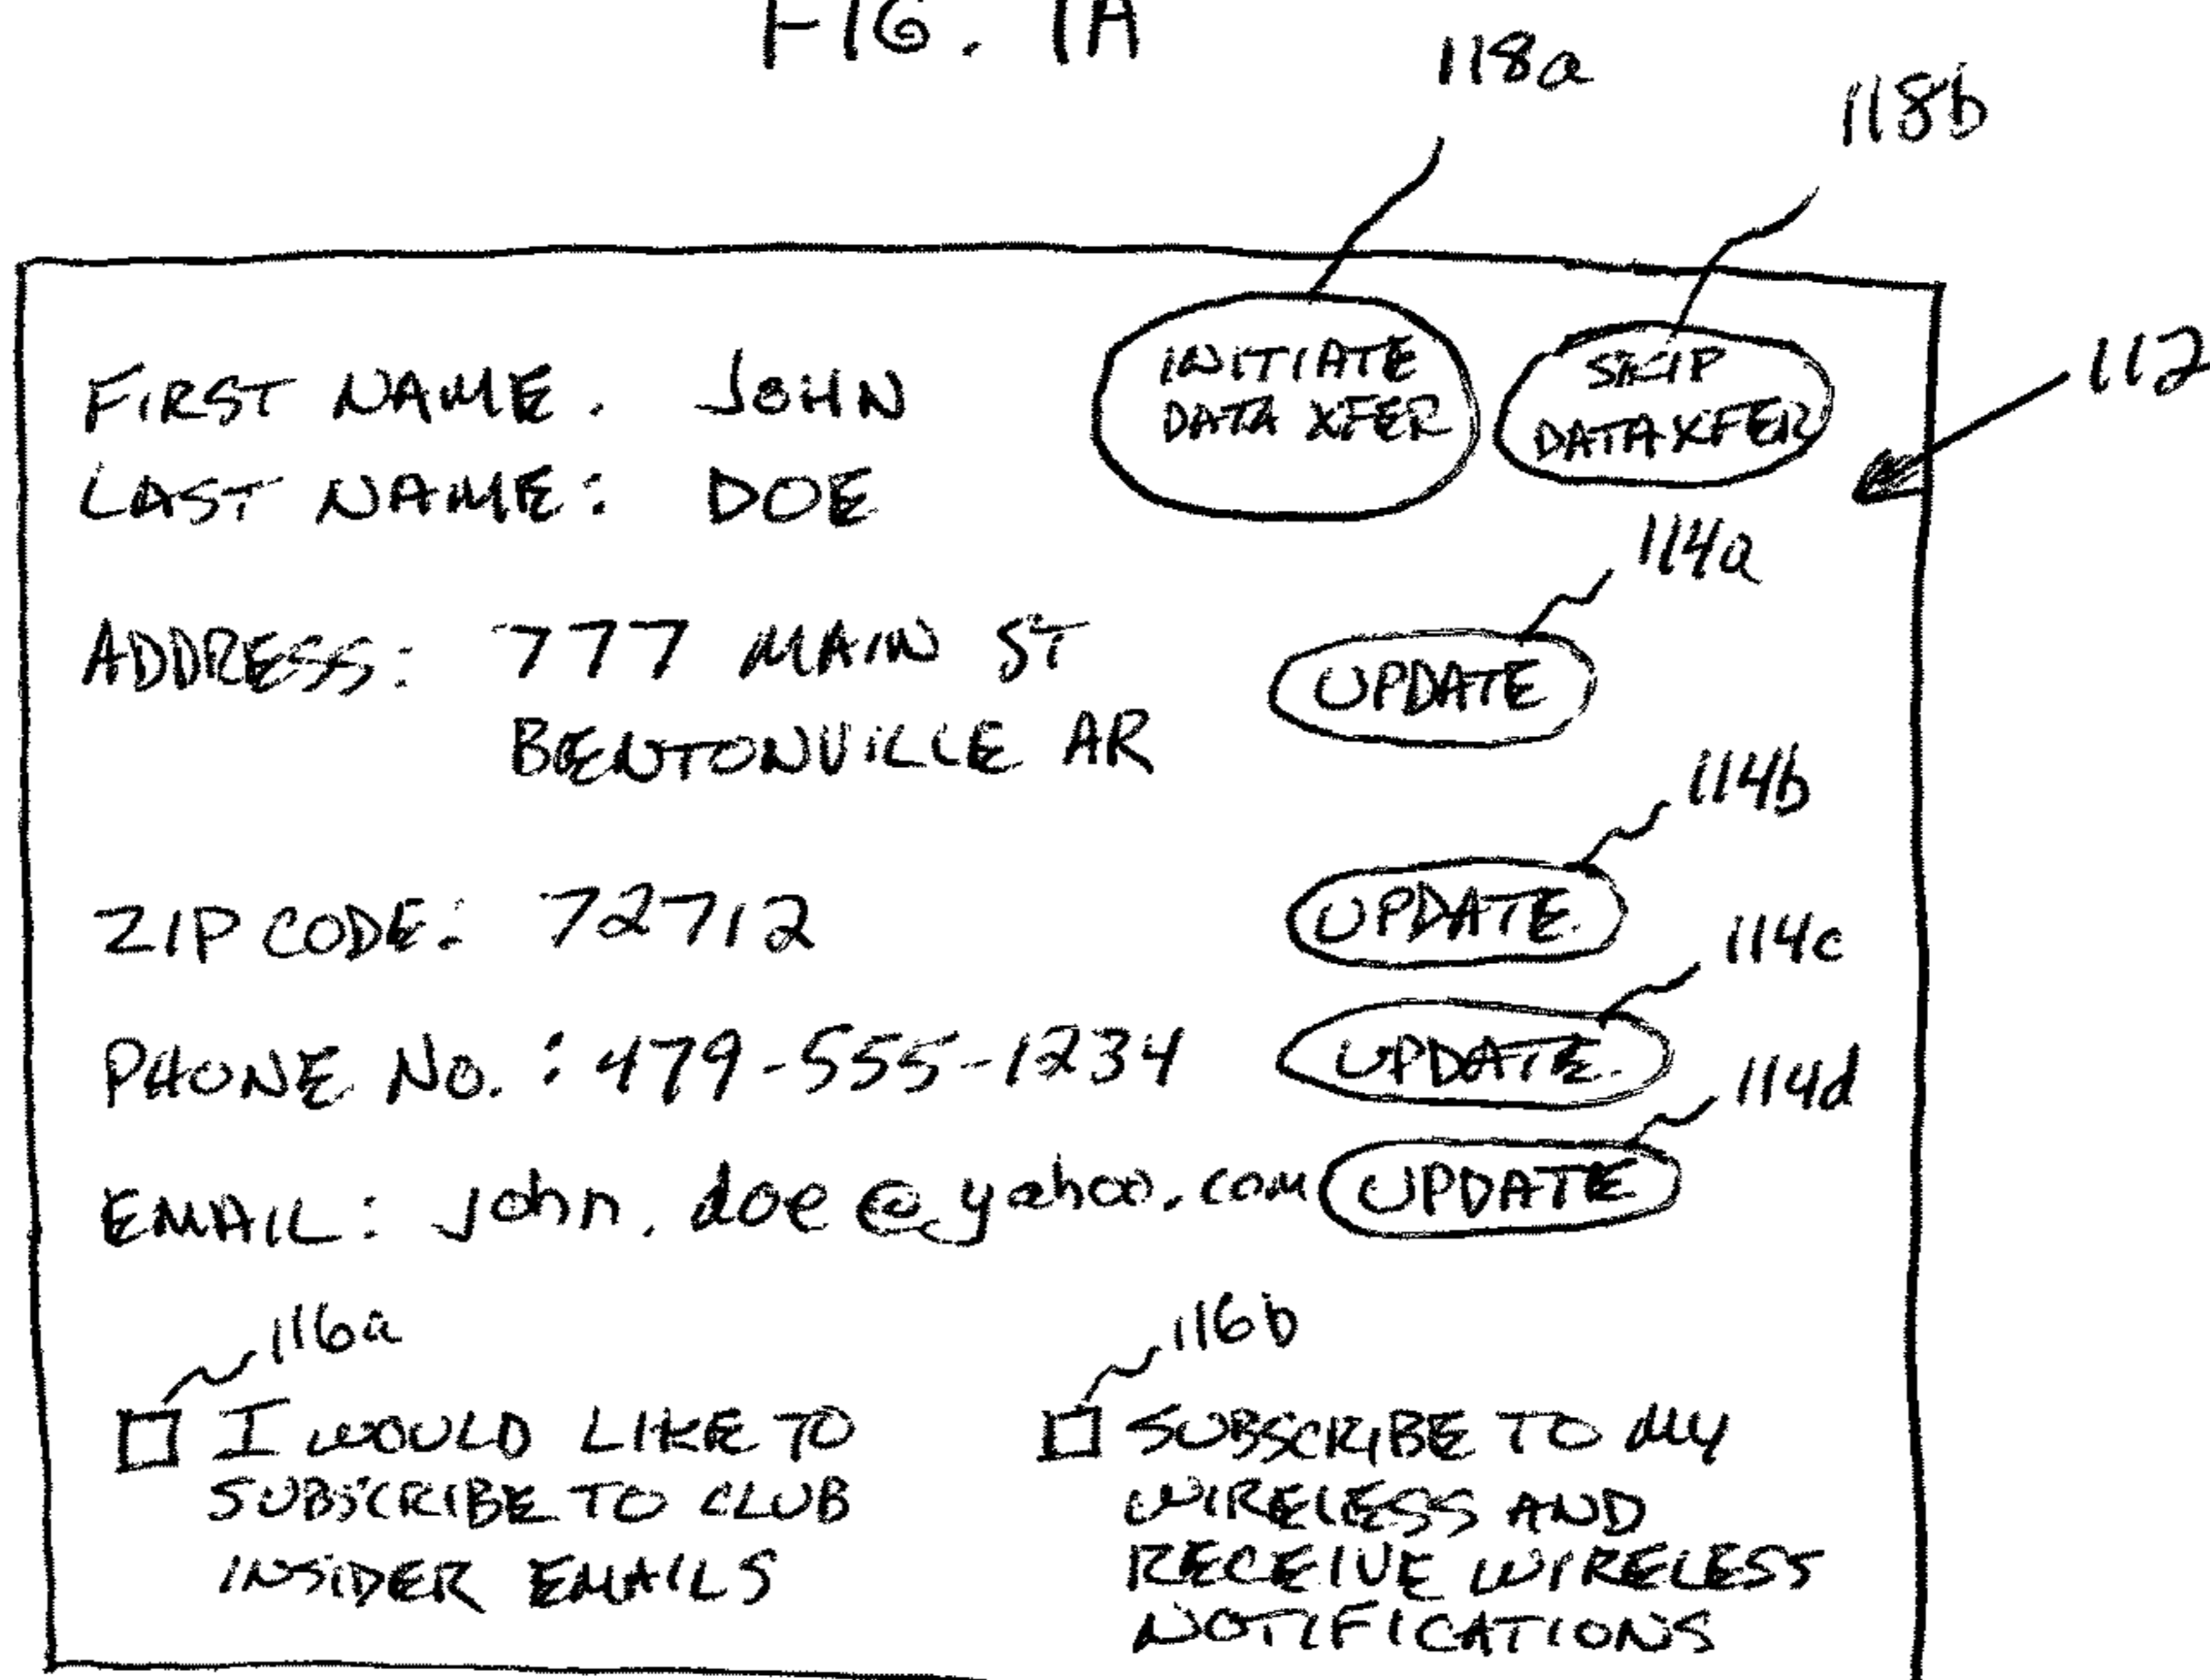 FIG. 1A
118a
118b
112
FIRST NAME. JOHN
LAST NAME: DOE
INITIATE
DATA XFER
SKIP
DATA XFER
114a
ADDRESS: 777 MAIN ST
BENTONVILLE AR
UPDATE
114b
ZIP CODE: 72712
UPDATE
114c
PHONE NO.: 479-555-1234
UPDATE
114d
EMAIL: john.doe@yahoo.com
UPDATE
116a
I WOULD LIKE TO
SUBSCRIBE TO CLUB
INSIDER EMAILS
116b
SUBSCRIBE TO MY
WIRELESS AND
RECEIVE WIRELESS
NOTIFICATIONS